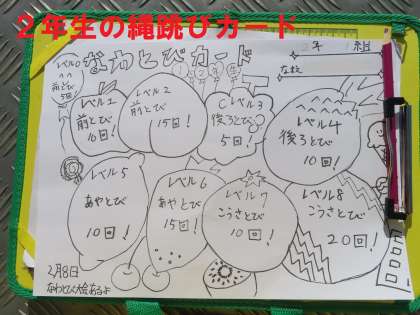 2年生の縄跳びカード
なわとびカード
1 2年生
2年 1組
なまえ
レベル0
前とび
5回!
レベル1
前とび
10回!
レベル2
前とび
15回!
レベル3
後ろとび
5回!
レベル4
後ろとび
10回!
レベル5
あやとび
10回!
レベル6
あやとび
15回!
レベル7
こうさとび
10回!
レベル8
こうさとび
20回!
2月8日
なわとび大会あるよ